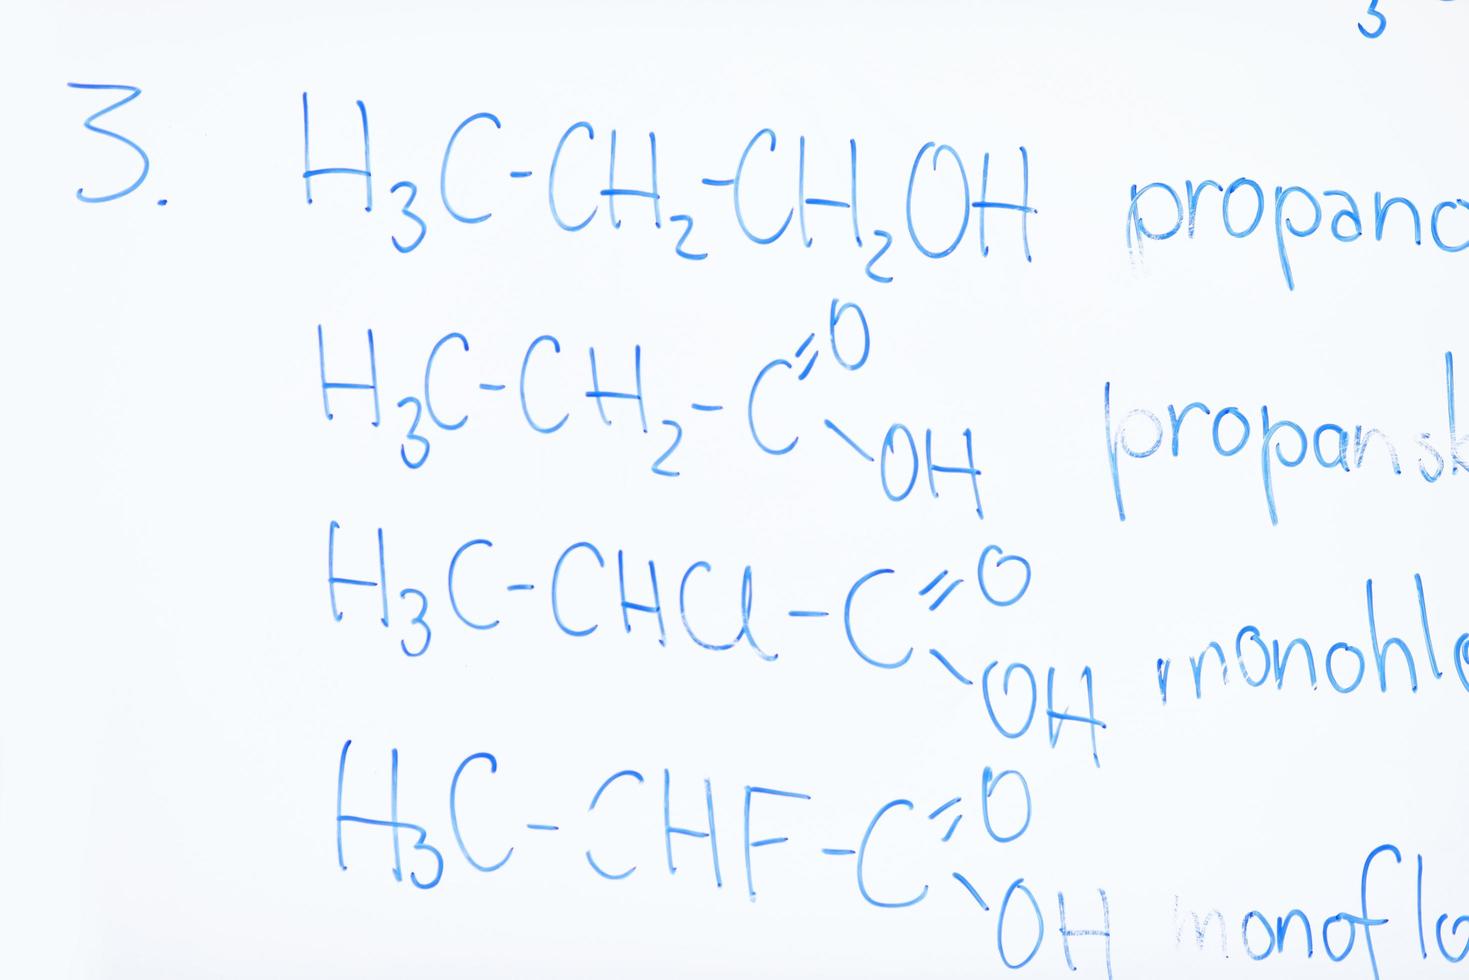 3
3. H₃C-CH₂-CH₂OH propano
H₃C-CH₂-C=O \OH propansk
H₃C-CHCl-C=O \OH monohlo
H₃C-CHF-C=O \OH monoflo